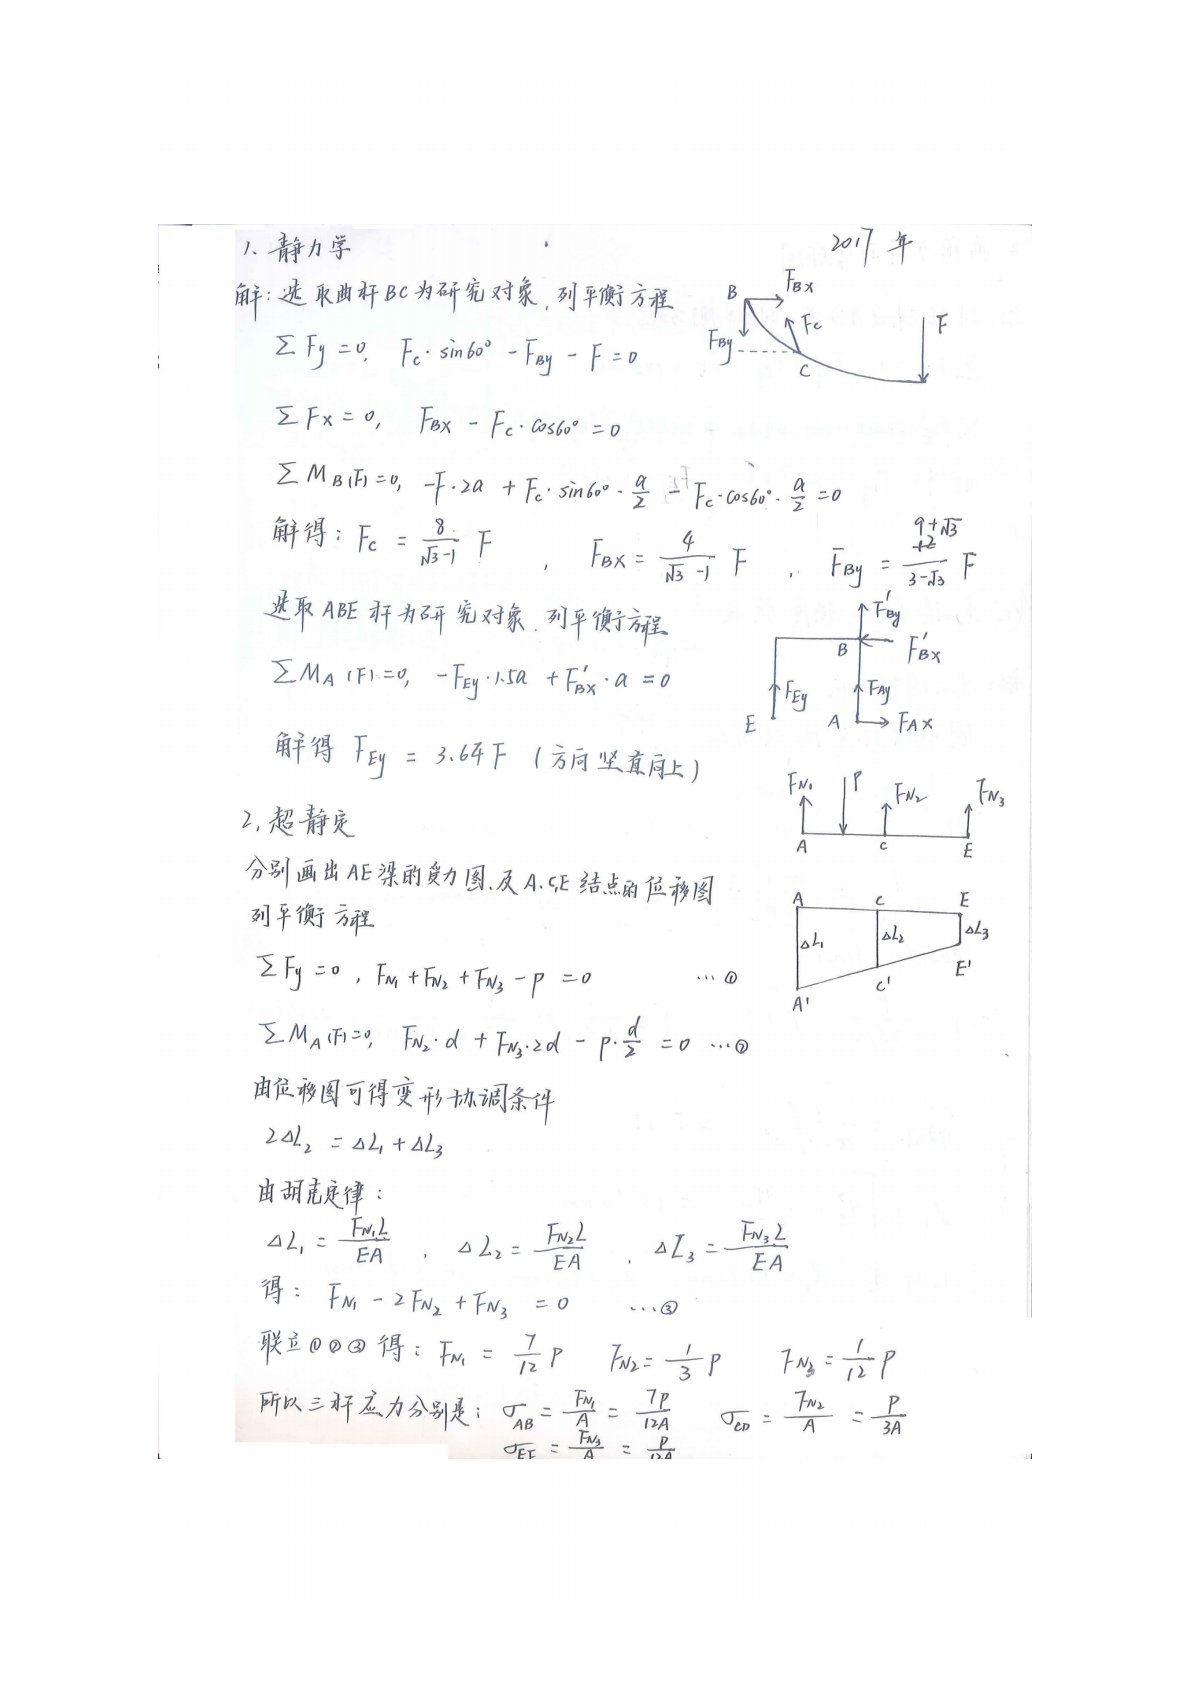 1、静力学
2017年
解：选取曲杆BC为研究对象，列平衡方程
B FBx
FBy Fc F
C
ΣFy=0, Fc·sin60°-FBy-F=0
ΣFx=0, FBx-Fc·cos60°=0
ΣMB(F)=0, -F·2a+Fc·sin60°·a/2-Fc·cos60°·a/2=0
解得：Fc=8/(√3-1) F , FBx=4/(√3-1) F , FBy=(9+√3)/(3-√3) F
选取ABE杆为研究对象，列平衡方程
F'By
B F'Bx
FEy FAy
E A FAx
ΣMA(F)=0, -FEy·1.5a+F'Bx·a=0
解得 FEy=3.64F (方向竖直向上)
FN1 P FN2 FN3
A C E
2，超静定
分别画出AE梁的受力图，及A.C,E结点的位移图
A C E
ΔL1 ΔL2 ΔL3
A' C' E'
列平衡方程
ΣFy=0, FN1+FN2+FN3-P=0 …①
ΣMA(F)=0, FN2·d+FN3·2d-P·d/2=0 …②
由位移图可得变形协调条件
2ΔL2=ΔL1+ΔL3
由胡克定律：
ΔL1=FN1L/EA , ΔL2=FN2L/EA , ΔL3=FN3L/EA
得：FN1-2FN2+FN3=0 …③
联立①②③得：FN1=7/12 P FN2=1/3 P FN3=1/12 P
所以三杆应力分别是：σAB=FN1/A=7P/12A σCD=FN2/A=P/3A
σEF=FN3/A=P/12A